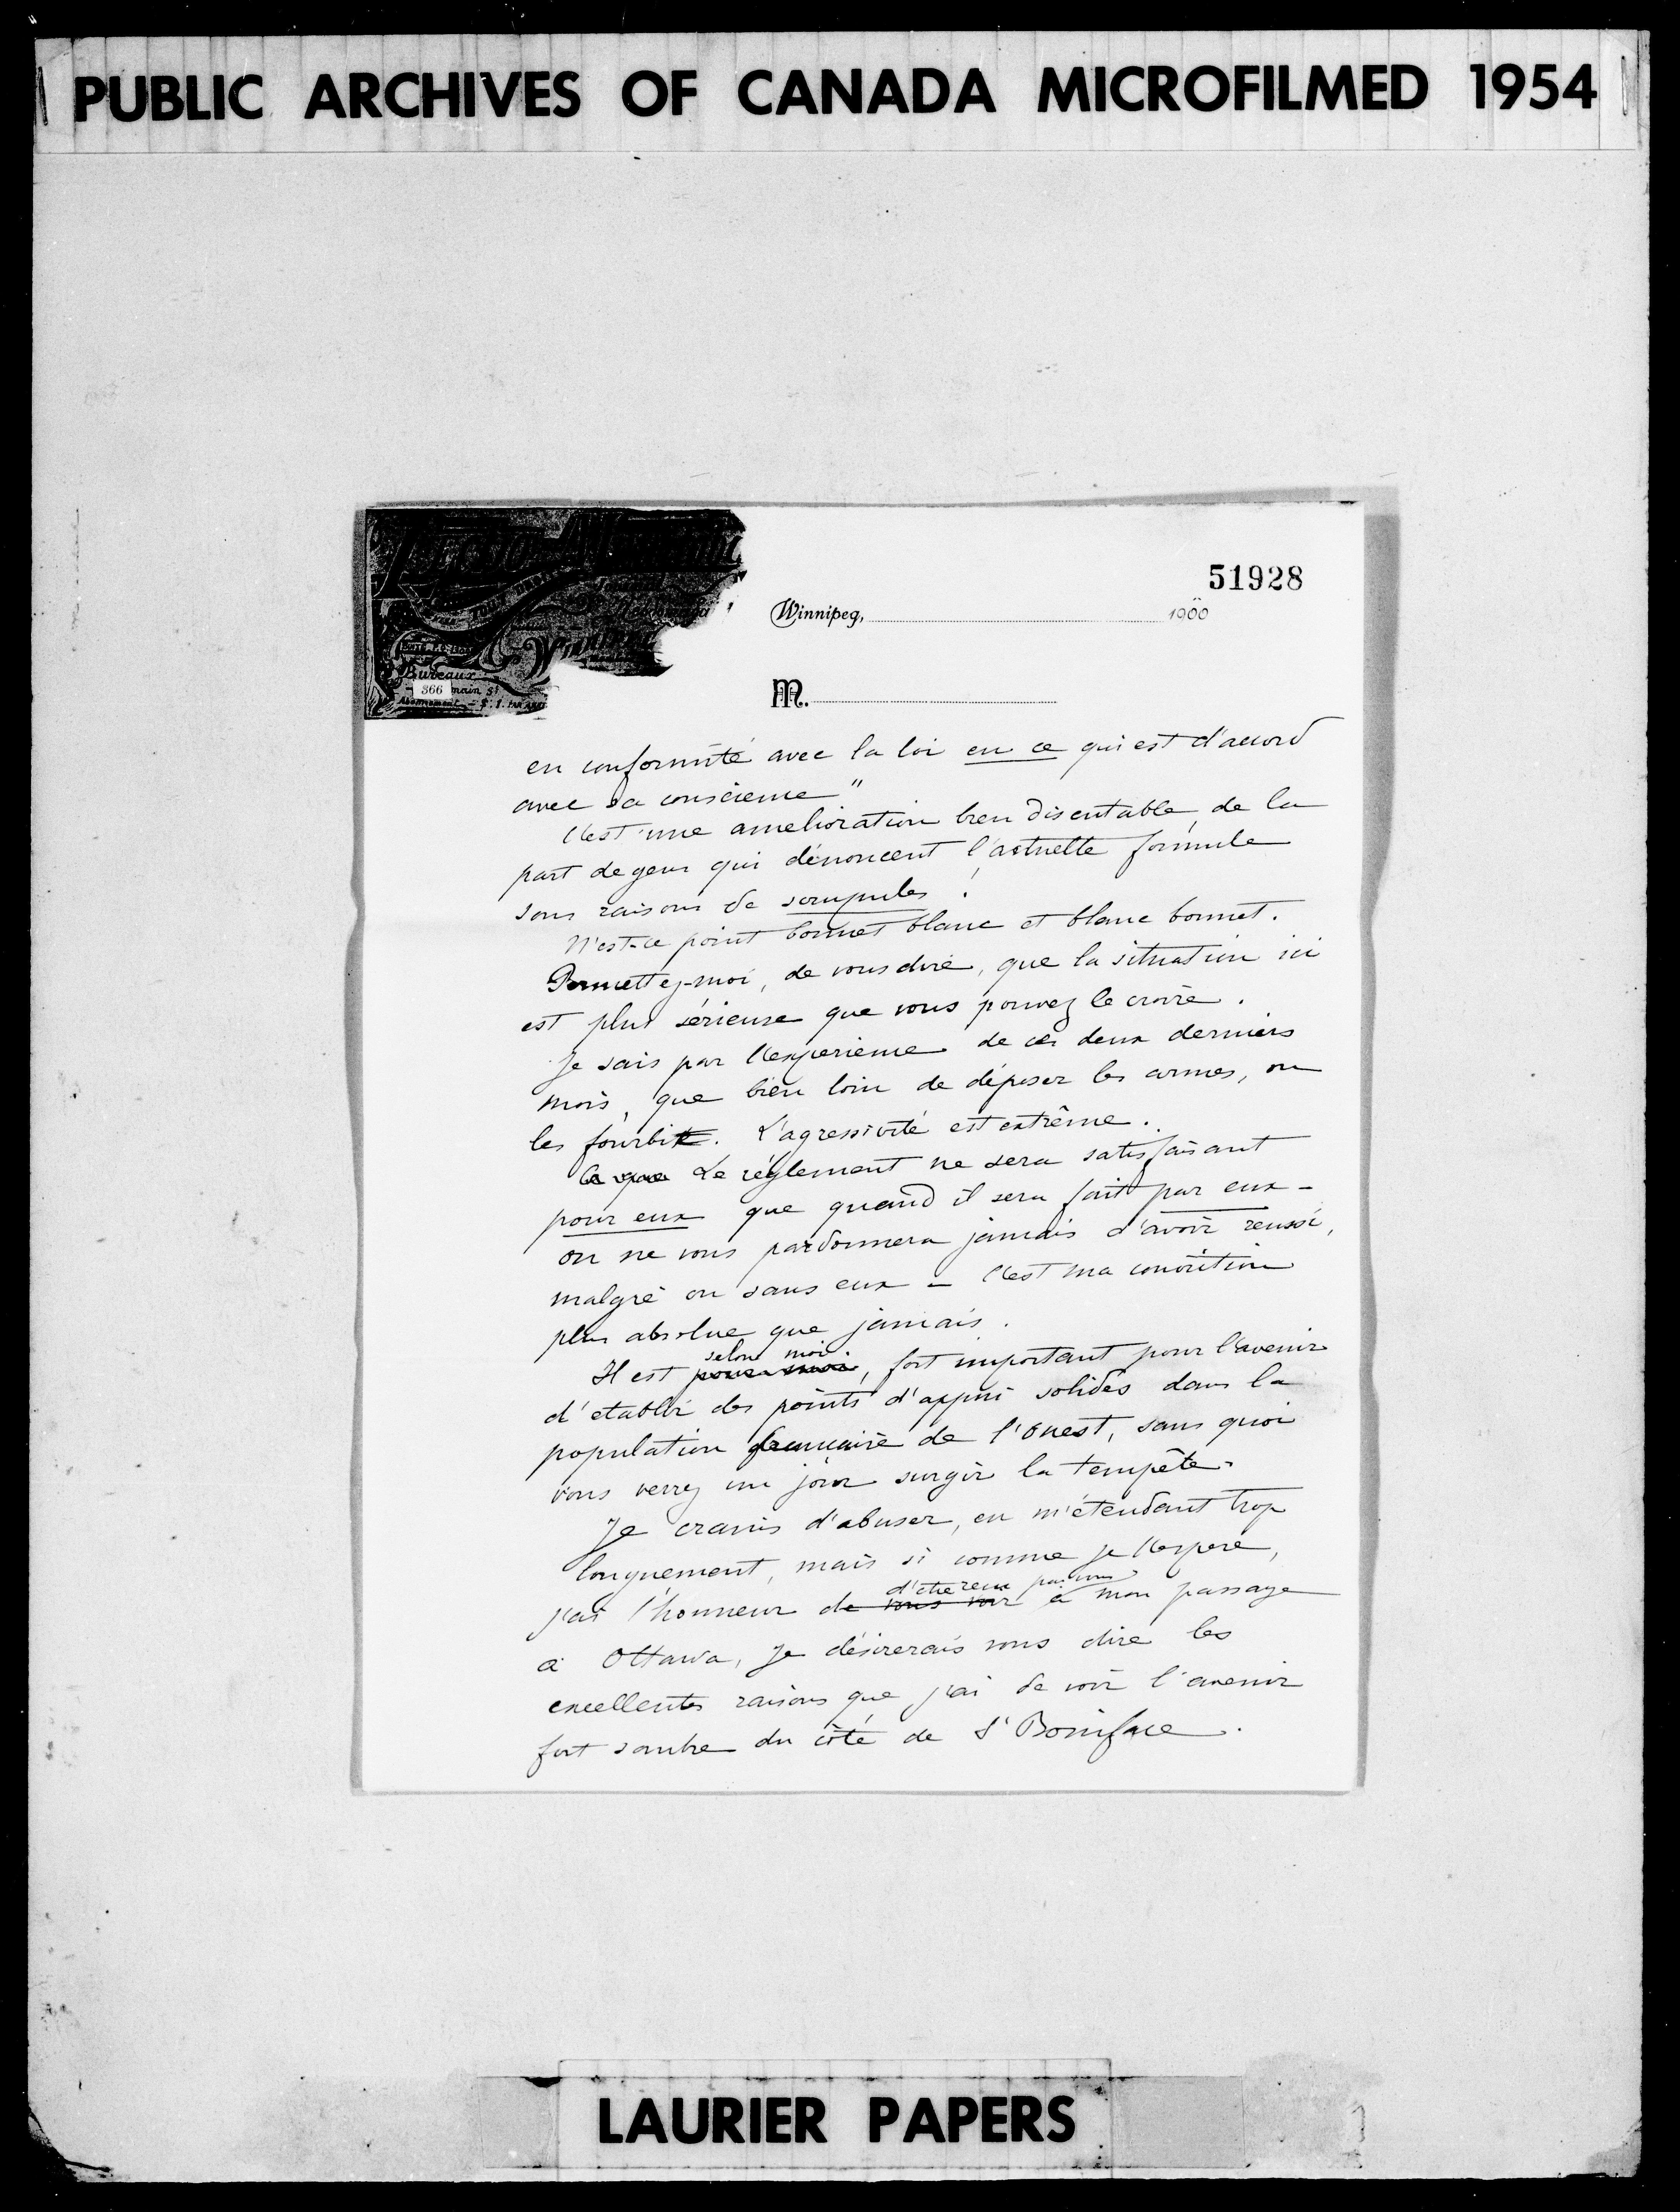 PUBLIC ARCHIVES OF CANADA MICROFILMED 1954
51928
Winnipeg, 1900
Winnipeg
Bureaux
366 main St
M.
en conformité avec la loi en ce qui est d'accord
avec sa conscience"
C'est une amelioration bien discutable, de la
part de gens qui dénoncent l'actuelle formule
sous raisons de scrupules !
N'est-ce point bonnet blanc et blanc bonnet.
Permettez-moi, de vous dire, que la situation ici
est plus sérieuse que vous pouvez le croire.
Je sais par l'experience de ces deux derniers
mois, que bien loin de déposer les armes, on
les fourbit. L'agressivité est extrême.
Ce que Le réglement ne sera satisfaisant
pour eux que quand il sera fait par eux -
on ne vous pardonnera jamais d'avoir reussi,
malgré ou sans eux - C'est ma conviction
plus absolue que jamais.
selon moi
Il est pour moi, fort important pour l'avenir
d'etablir des points d'appui solides dans la
population francaise de l'Ouest, sans quoi
vous verrez un jour surgir la tempête.
Je crains d'abuser, en m'étendant trop
longuement, mais si comme je l'espere,
d'etre recu par vous
j'ai l'honneur de vous voir à mon passage
à Ottawa, je désirerais vous dire les
excellentes raisons que j'ai de voir l'avenir
fort sombre du côté de St Boniface.
LAURIER PAPERS